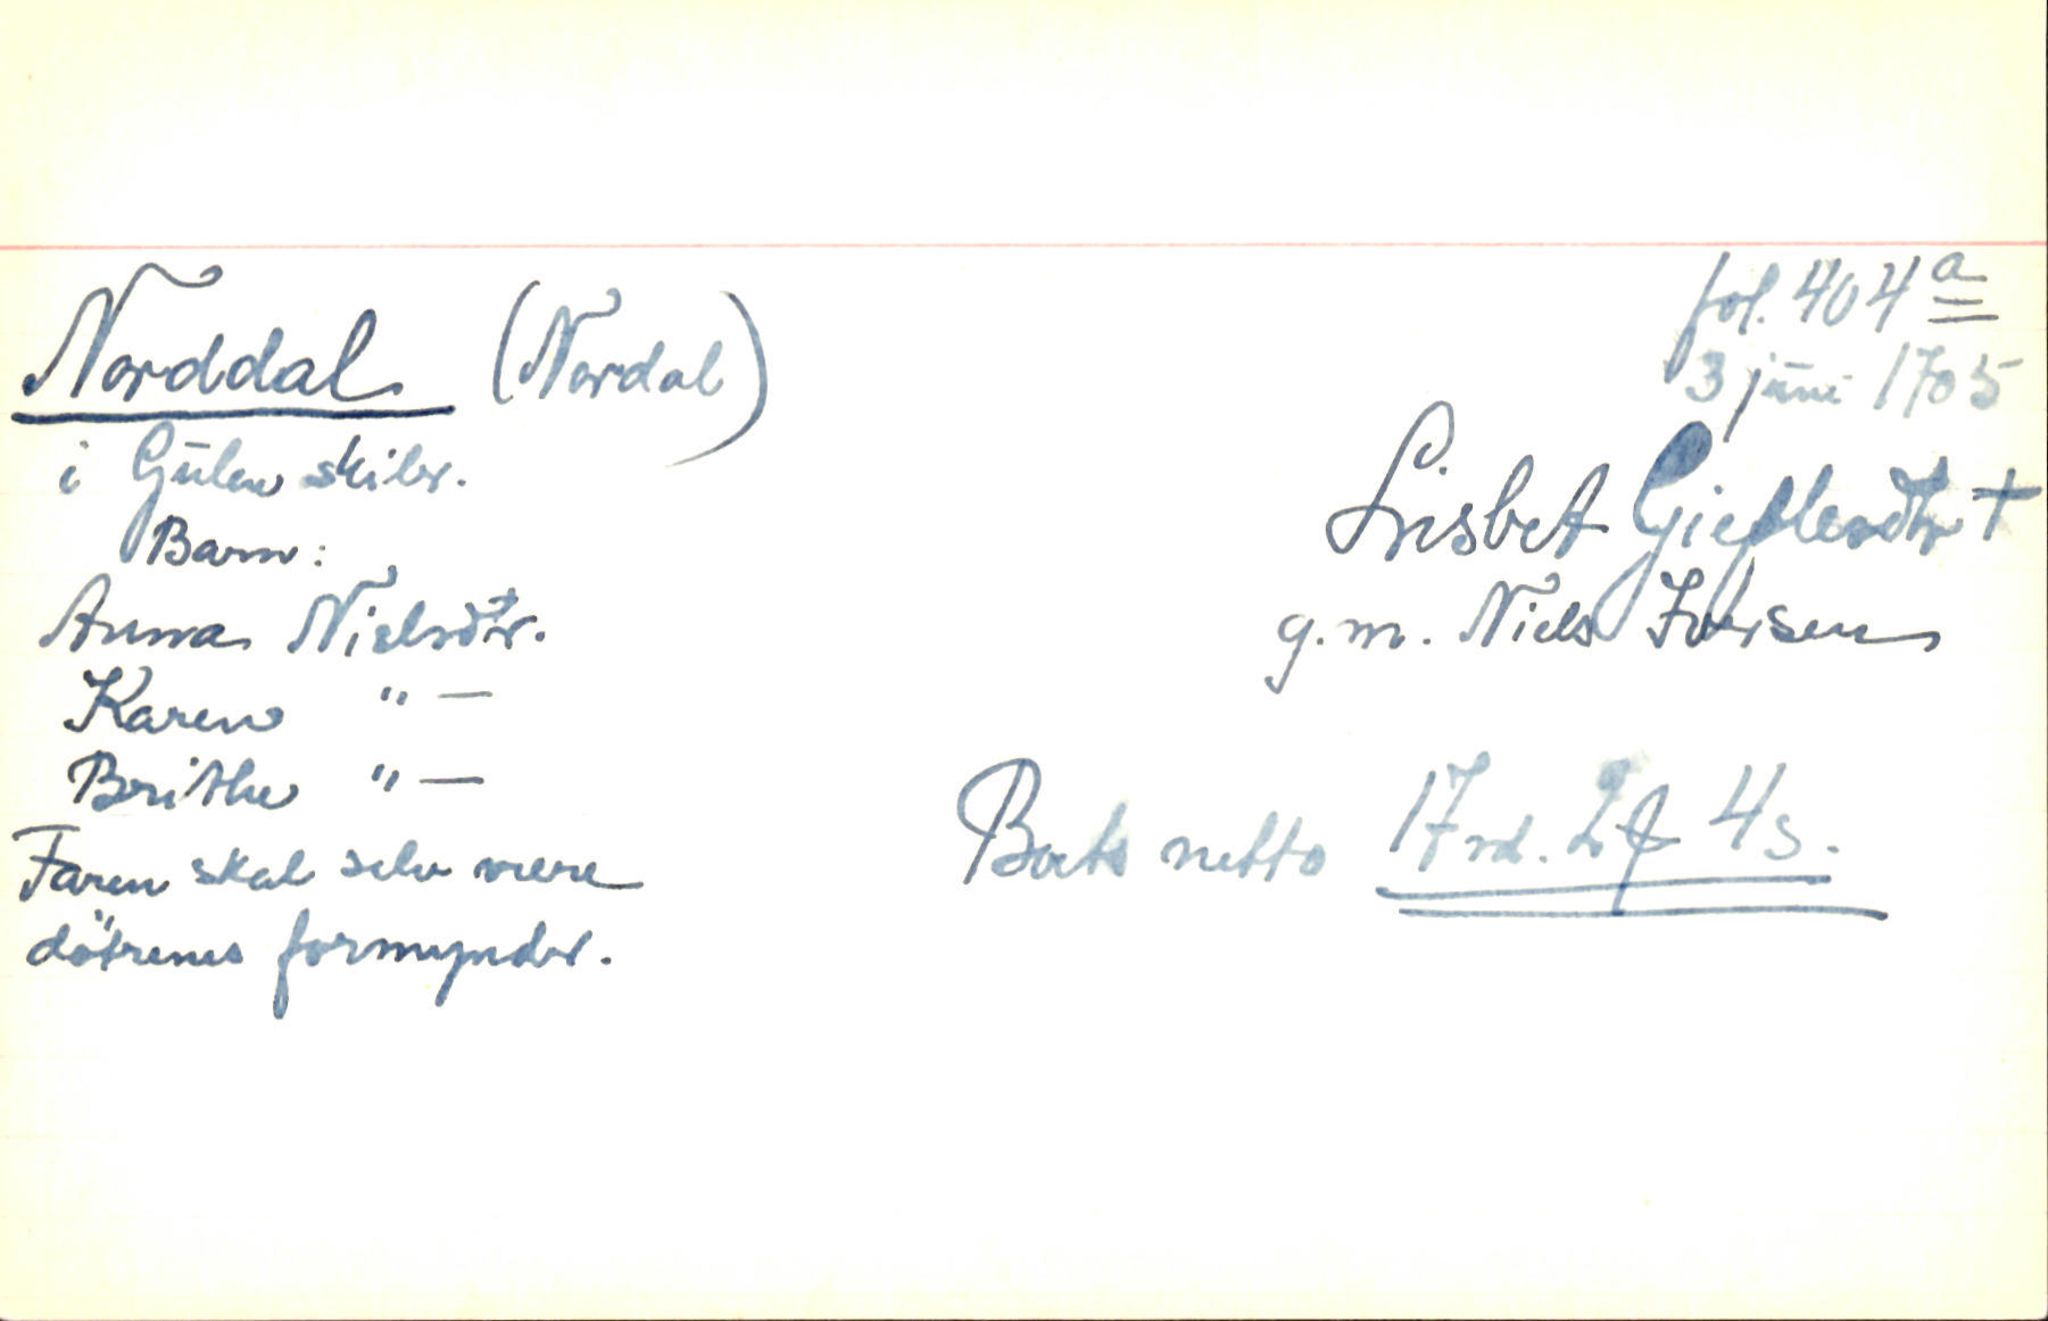 Norddal (Nordal)
i Gulen skibr.
Barn:
Anna Nielsdtr.
Karen " —
Brithe " —
Faren skal selv være
døtrenes formynder.
fol. 404 a
3 juni 1705
Lisbet dtr †
g. m. Niels Iversen
Boets netto 17 rd. 2 4 s.